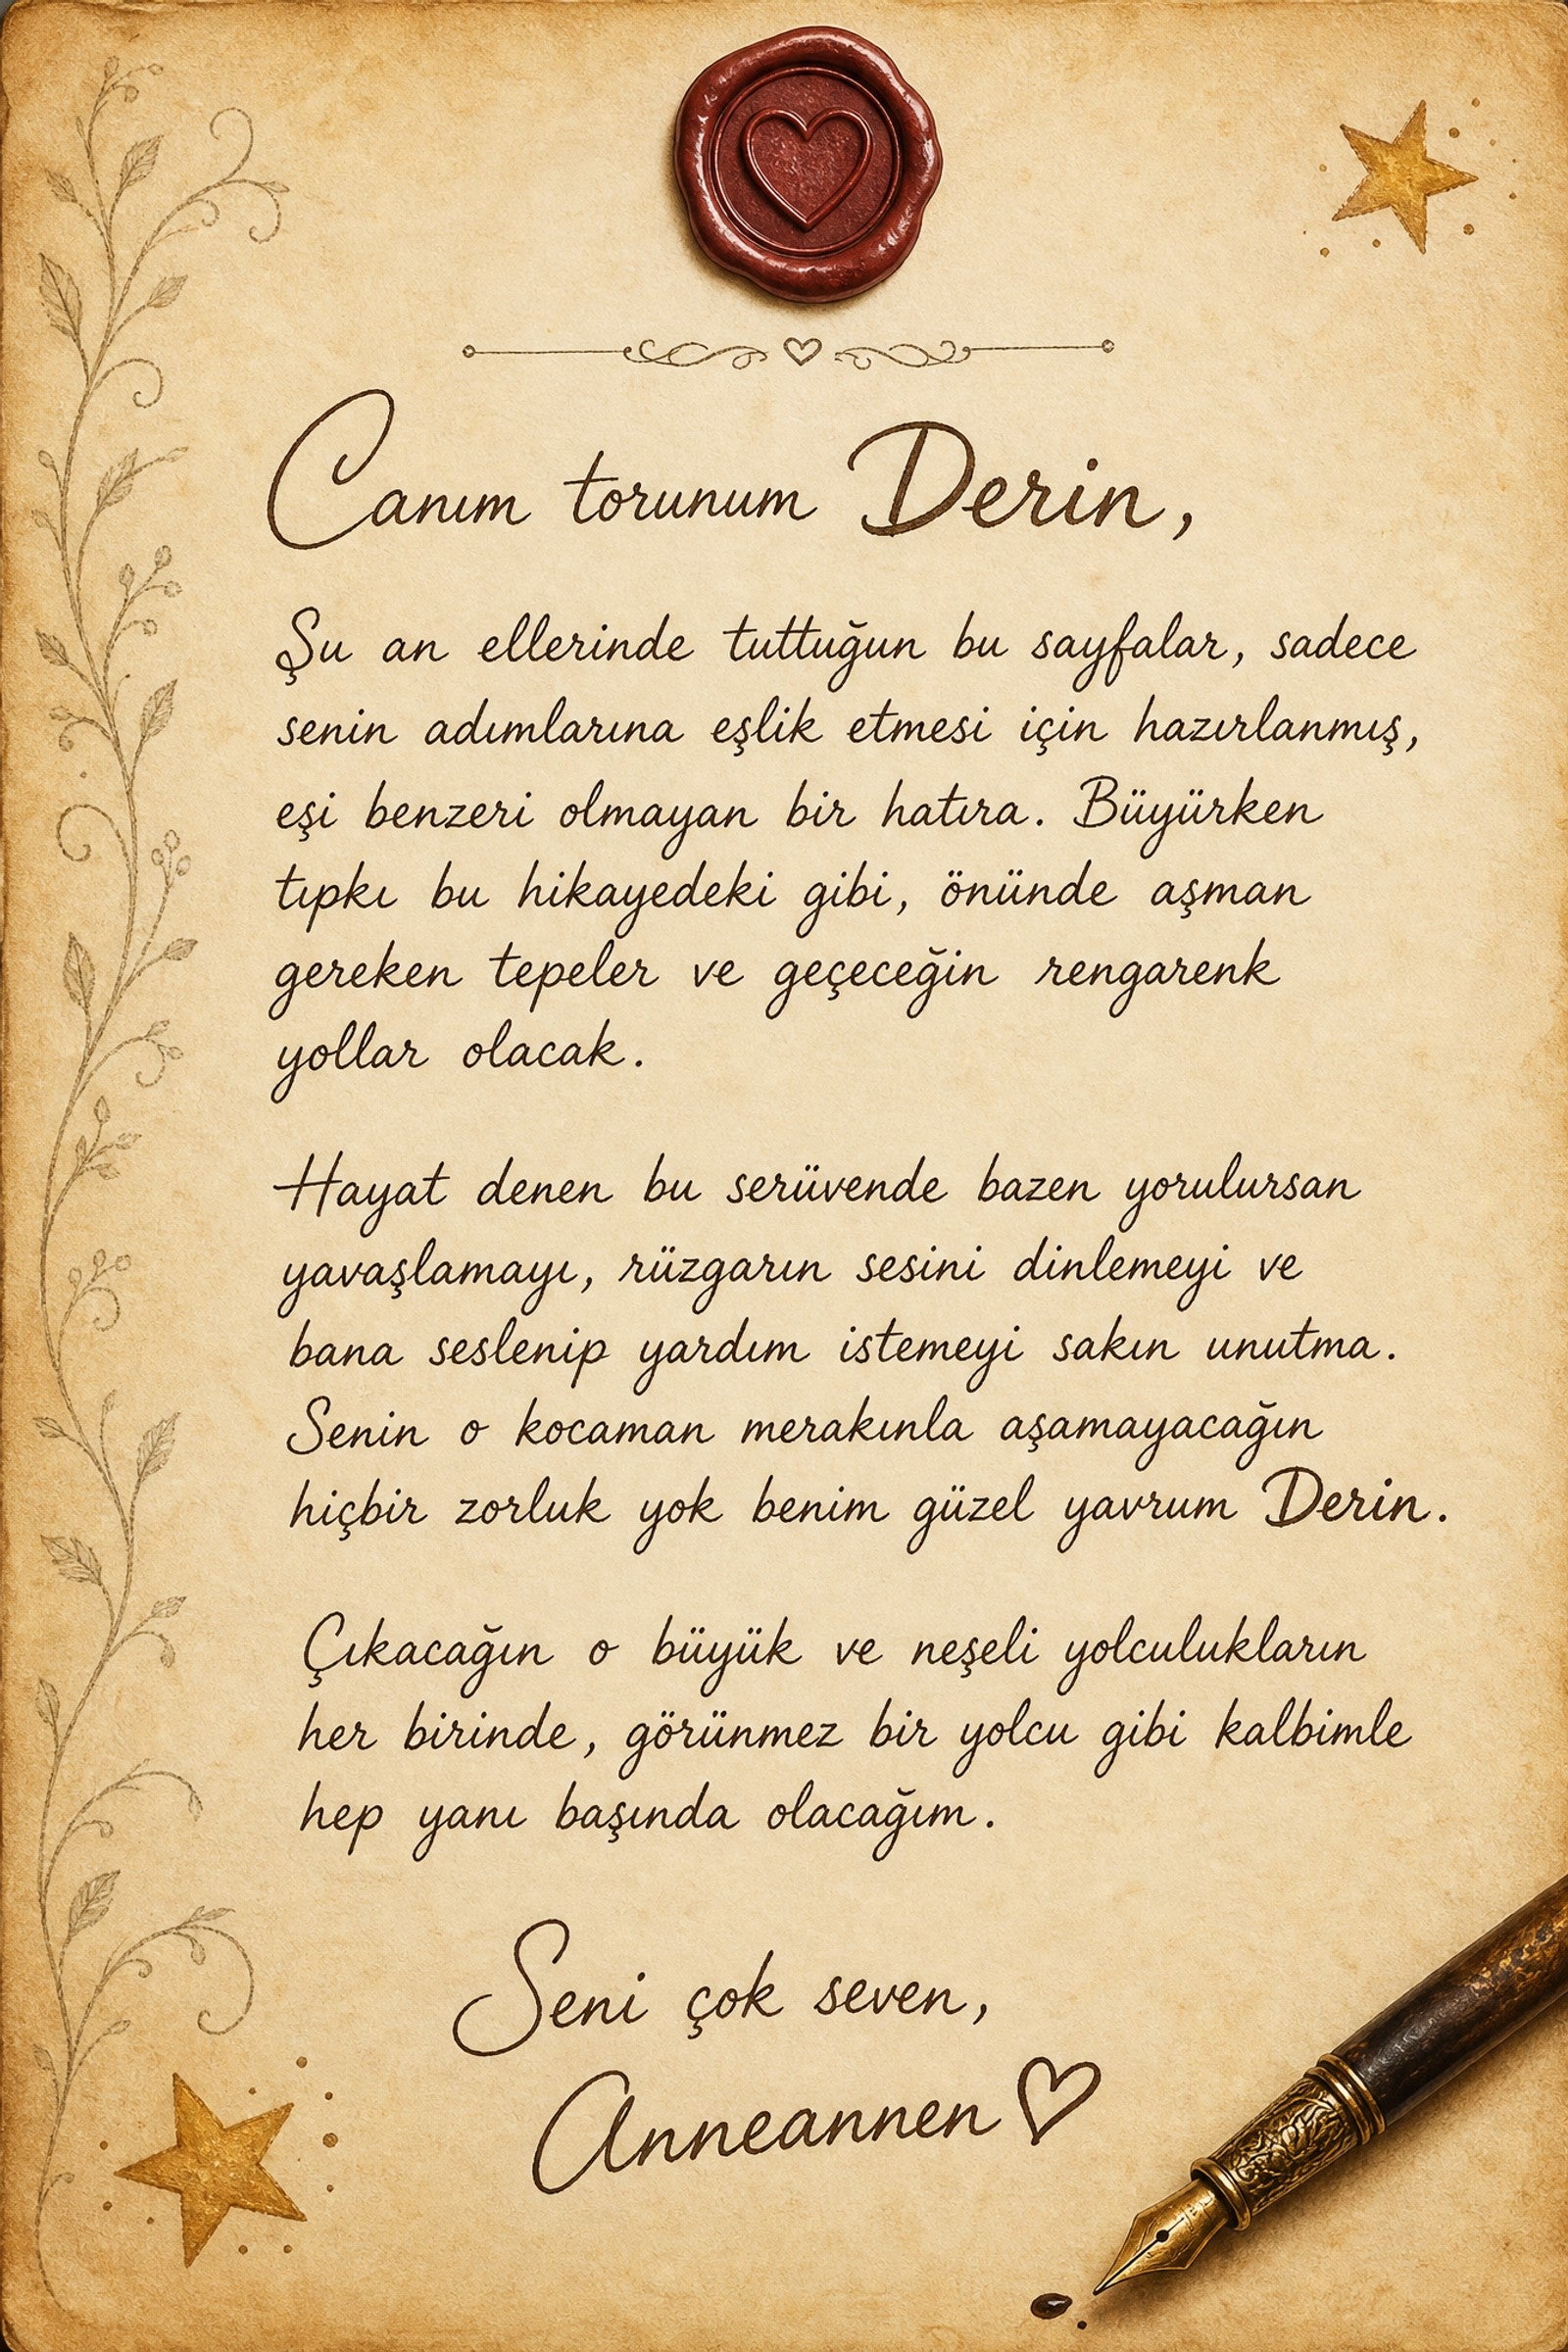 Canım torunum Derin,
Şu an ellerinde tuttuğun bu sayfalar, sadece
senin adımlarına eşlik etmesi için hazırlanmış,
eşi benzeri olmayan bir hatıra. Büyürken
tıpkı bu hikayedeki gibi, önünde aşman
gereken tepeler ve geçeceğin rengarenk
yollar olacak.
Hayat denen bu serüvende bazen yorulursan
yavaşlamayı, rüzgarın sesini dinlemeyi ve
bana seslenip yardım istemeyi sakın unutma.
Senin o kocaman merakınla aşamayacağın
hiçbir zorluk yok benim güzel yavrum Derin.
Çıkacağın o büyük ve neşeli yolculukların
her birinde, görünmez bir yolcu gibi kalbimle
hep yanı başında olacağım.
Seni çok seven,
Anneannen